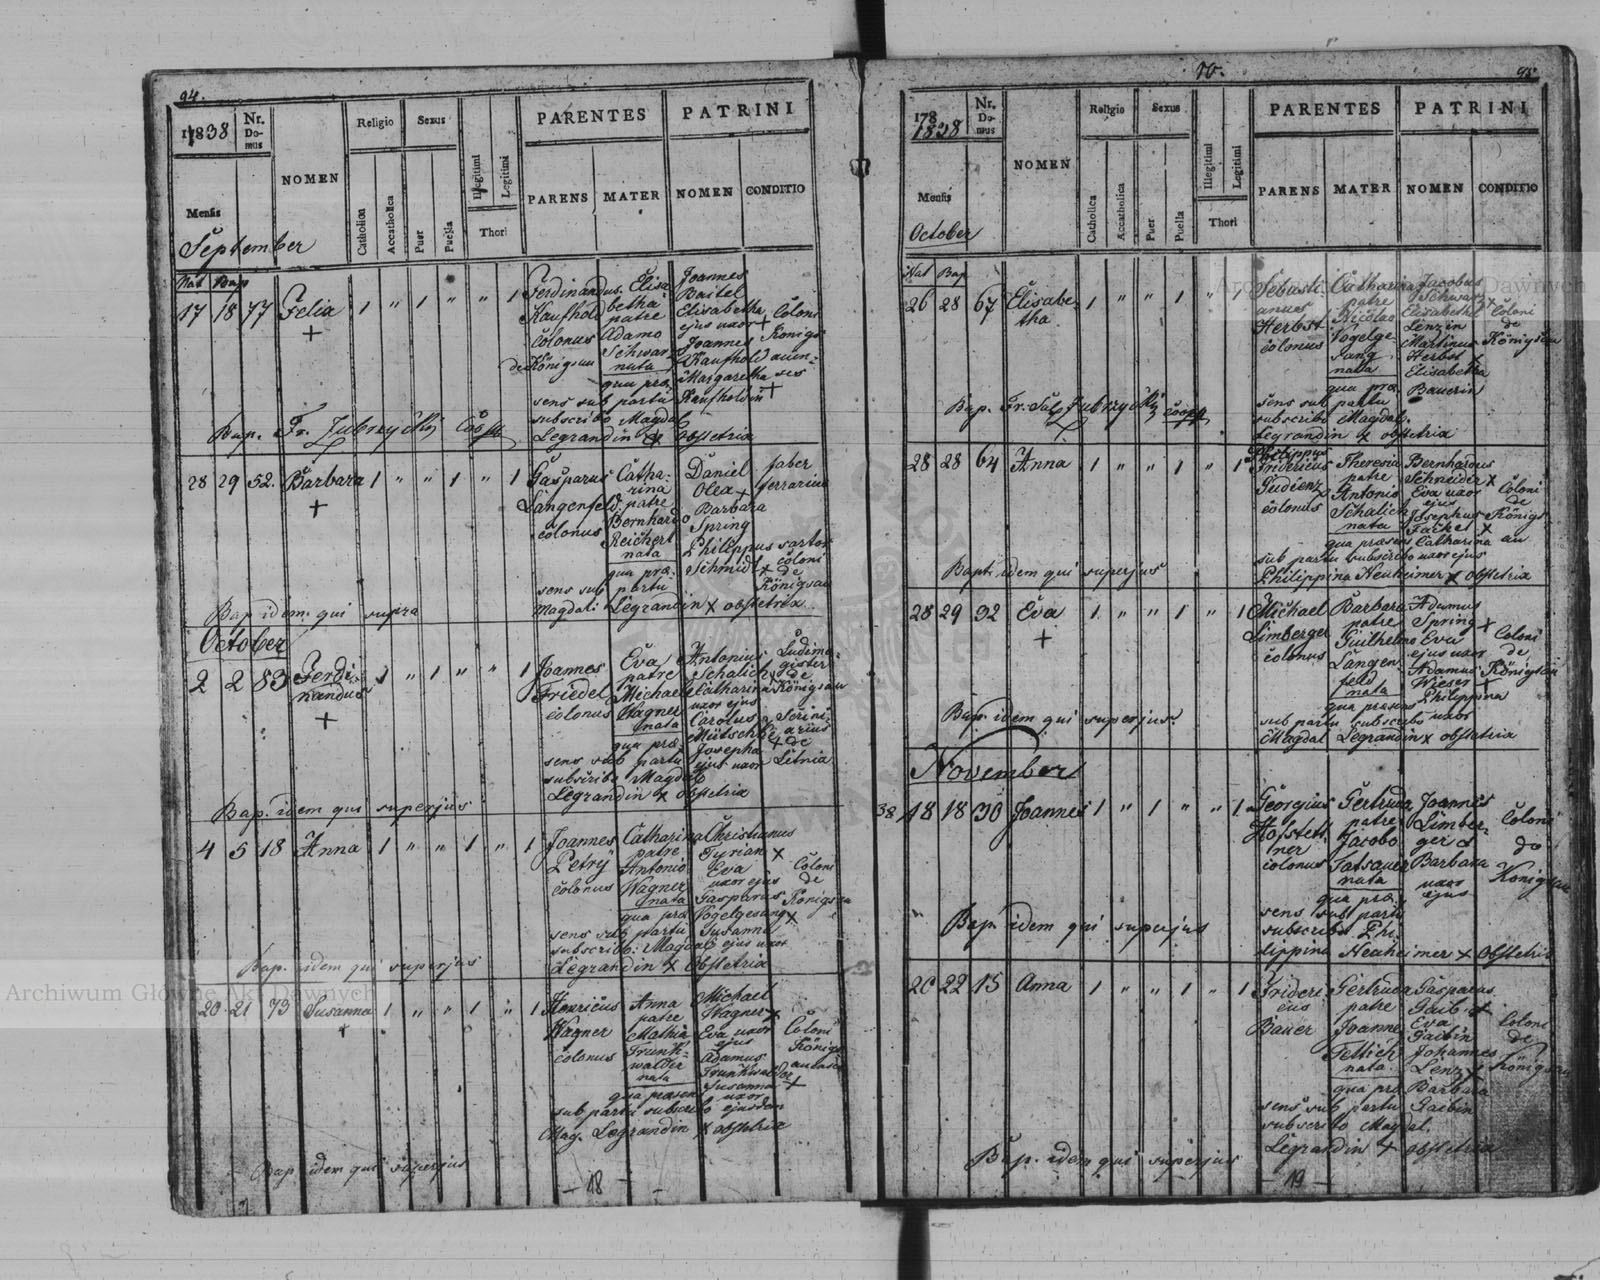 94.
1838
Nr. Domus
NOMEN
Religio
Sexus
PARENTES
PATRINI
Catholica
Accatholica
Puer
Puella
Illegitimi
Legitimi
Thori
PARENS
MATER
NOMEN
CONDITIO
Mensis
September
Nat
Bap
17 18 77 Felix 1 " 1 " " 1
+
Ferdinandus
Kaufhold
colonus
de Königsau
Elisa
betha
patre
Adamo
Schwarz
nata
qua præ
sens sub partu
subscribo Magdal
Legrandin x obstetrix
Joannes
Baitel
Elisabetha
ejus uxor +
Joannes
Kaufhold
Margaretha
Kaufholdin +
Coloni
Königs
auen
ses
Bap. Fr. Zubrzycki Coop
28 29 52. Barbara 1 " " 1 " 1
+
Gasparus
Langenfeld
colonus
Catha
rina
patre
Bernhardo
Reichert
nata
qua præ
sens sub partu
Magdali Legrandin x obstetrix
Daniel
Olex +
Barbara
Spring
Philippus
Schmidt x
faber
ferrarius
sartor
coloni
de
Königsau
Bap idem qui supra
October
2 2 83 Ferdi
nandus 1 " 1 " " 1
+
Joannes
Friedel
colonus
Eva
patre
Michaele
Wagner
nata
qua præ
sens sub partu
subscribo Magdal
Legrandin x obstetrix
Antonius
Schalich x
Catharina
uxor ejus
Carolus
Josepha +
ejus uxor
Ludima
gister
de
Königsau
Scrini
arius
de
Letnia
Bap. idem qui superjus
4 5 18 Anna 1 " " 1 " 1
Joannes
Petry
colonus
Catharina
patre
Antonio
Wagner
nata
qua præ
sens sub partu
subscribo Magdal
Legrandin x Obstetrix
Christianus
Tyrian x
Eva
uxor ejus
Gasparus
Vogelgesang x
Susanna
ejus uxor
Coloni
de
Königsau
Bap. idem qui superjus
20 21 73 Susanna 1 " " 1 " 1
+
Henricus
Wagner
colonus
Anna
patre
Mathia
Trunk
walder
nata
qua præsens
sub partu subscribo
Mag. Legrandin x obstetrix
Michael
Wagner x
Eva uxor
ejus
Adamus
Trunkwalder
Susanna +
uxor
ejusdem
Coloni
Königs
Bap. idem qui superjus
- 18 -
10.
95
178
1838
Nr. Domus
NOMEN
Religio
Sexus
PARENTES
PATRINI
Catholica
Accatholica
Puer
Puella
Illegitimi
Legitimi
Thori
PARENS
MATER
NOMEN
CONDITIO
Mensis
October
Nat
Bap
26 28 67 Elisabe
tha 1 " " 1 " 1
Sebasti
anus
Herbst
colonus
Catharina
patre
Nicolao
Vogelge
sang
nata
qua præ
sens sub partu
subscribo Magdal.
Legrandin x obstetrix
Jacobus
Schwarz x
Elisabetha
Lenzin
Martinus
Herbst x
Elisabetha
Bauerin
Coloni
de
Königsau
Bap. Fr. Sal. Zubrzycki coop
28 28 64 Anna 1 " " 1 " 1
Philippus
Fridericus
Gudienz
colonus
Theresia
patre
Antonio
Schalich
nata
qua præsens
sub partu subscribo
Philippina Neuheimer x obstetrix
Bernhardus
Schneider x
Eva uxor
ejus
Josephus
Jäckel x
Catharina
uxor ejus
Coloni
de
Königs
au
Bapt. idem qui superjus
28 29 92 Eva 1 " " 1 " 1
+
Michael
Limberger
colonus
Barbara
patre
Guilhelmo
Langen
feld
nata
qua præsens
sub partu subscribo
Magdal Legrandin x obstetrix
Adamus
Spring x
Eva
ejus uxor
Adamus
Wieser +
Philippina
uxor
Coloni
de
Königsau
Bap. idem qui superjus.
November
38
18 18 30 Joannes 1 " 1 " " 1
Georgius
Hofstett
ner
colonus
Gertruda
patre
Jacobo
nata
qua præ
sens sub partu
subscribo Phi
lippina Neuheimer x Obstetrix
Joannes
Limber
ger
Barbara
uxor
ejus
Coloni
de
Königsau
Bap. idem qui superjus
20 22 15 Anna 1 " " 1 " 1
Frideri
cus
Bauer
Gertruda
patre
Joanne
Fettich
nata
qua præ
sens sub partu
subscribo Magdal.
Legrandin x obstetrix
Gasparus
Gaib x
Eva
Gaibin
Johannes
Lenz x
Barbara
Gaibin
Coloni
de
Königsau
Bap. idem qui superjus
- 19 -
Archiwum Główne Akt Dawnych